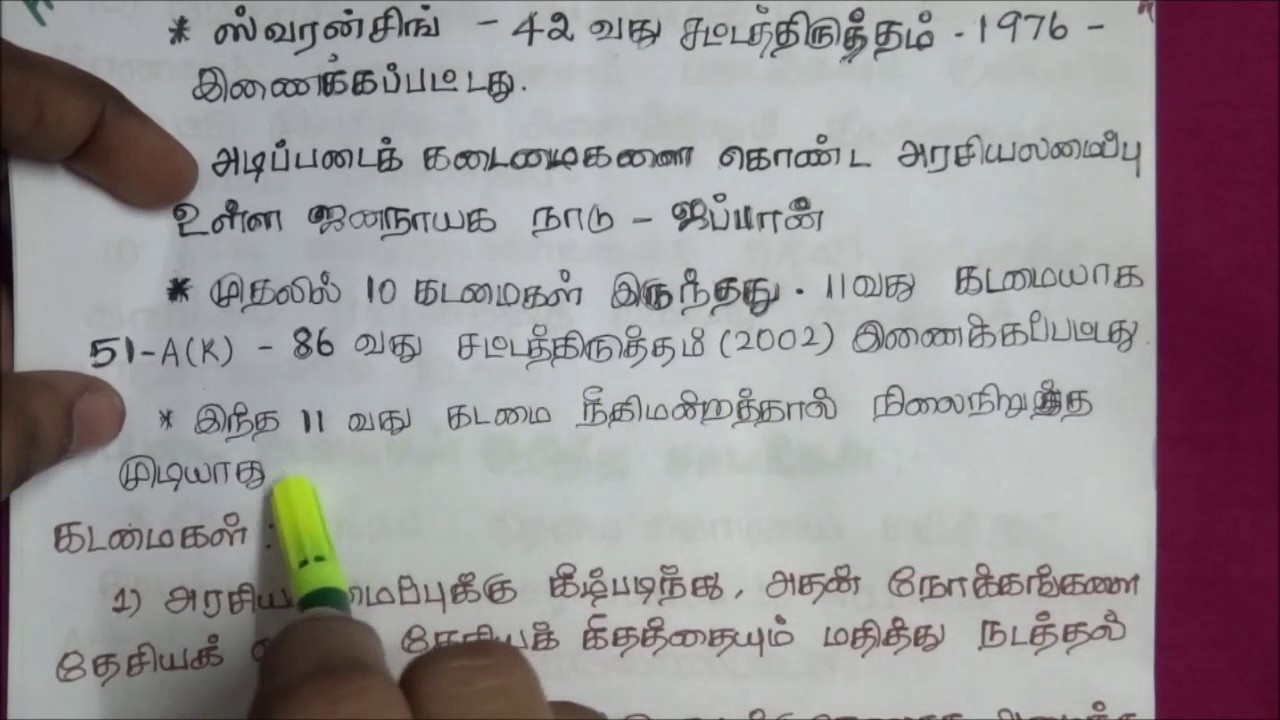 * ஸ்வரன்சிங் - 42 வது சட்டத்திருத்தம் - 1976 -
இணைக்கப்பட்டது.
அடிப்படைக் கடைமைகளை கொண்ட அரசியலமைப்பு
உள்ள ஜனநாயக நாடு - ஜப்பான்
* முதலில் 10 கடமைகள் இருந்தது. 11வது கடமையாக
51-A(K) - 86 வது சட்டத்திருத்தம் (2002) இணைக்கப்பட்டது.
* இந்த 11 வது கடமை நீதிமன்றத்தால் நிலைநிறுத்த
முடியாது
கடமைகள் :
1) அரசிய மைப்புக்கு கீழ்படிந்து, அதன் நோக்கங்களை
தேசியக் தேசியக் கீதத்தையும் மதித்து நடத்தல்